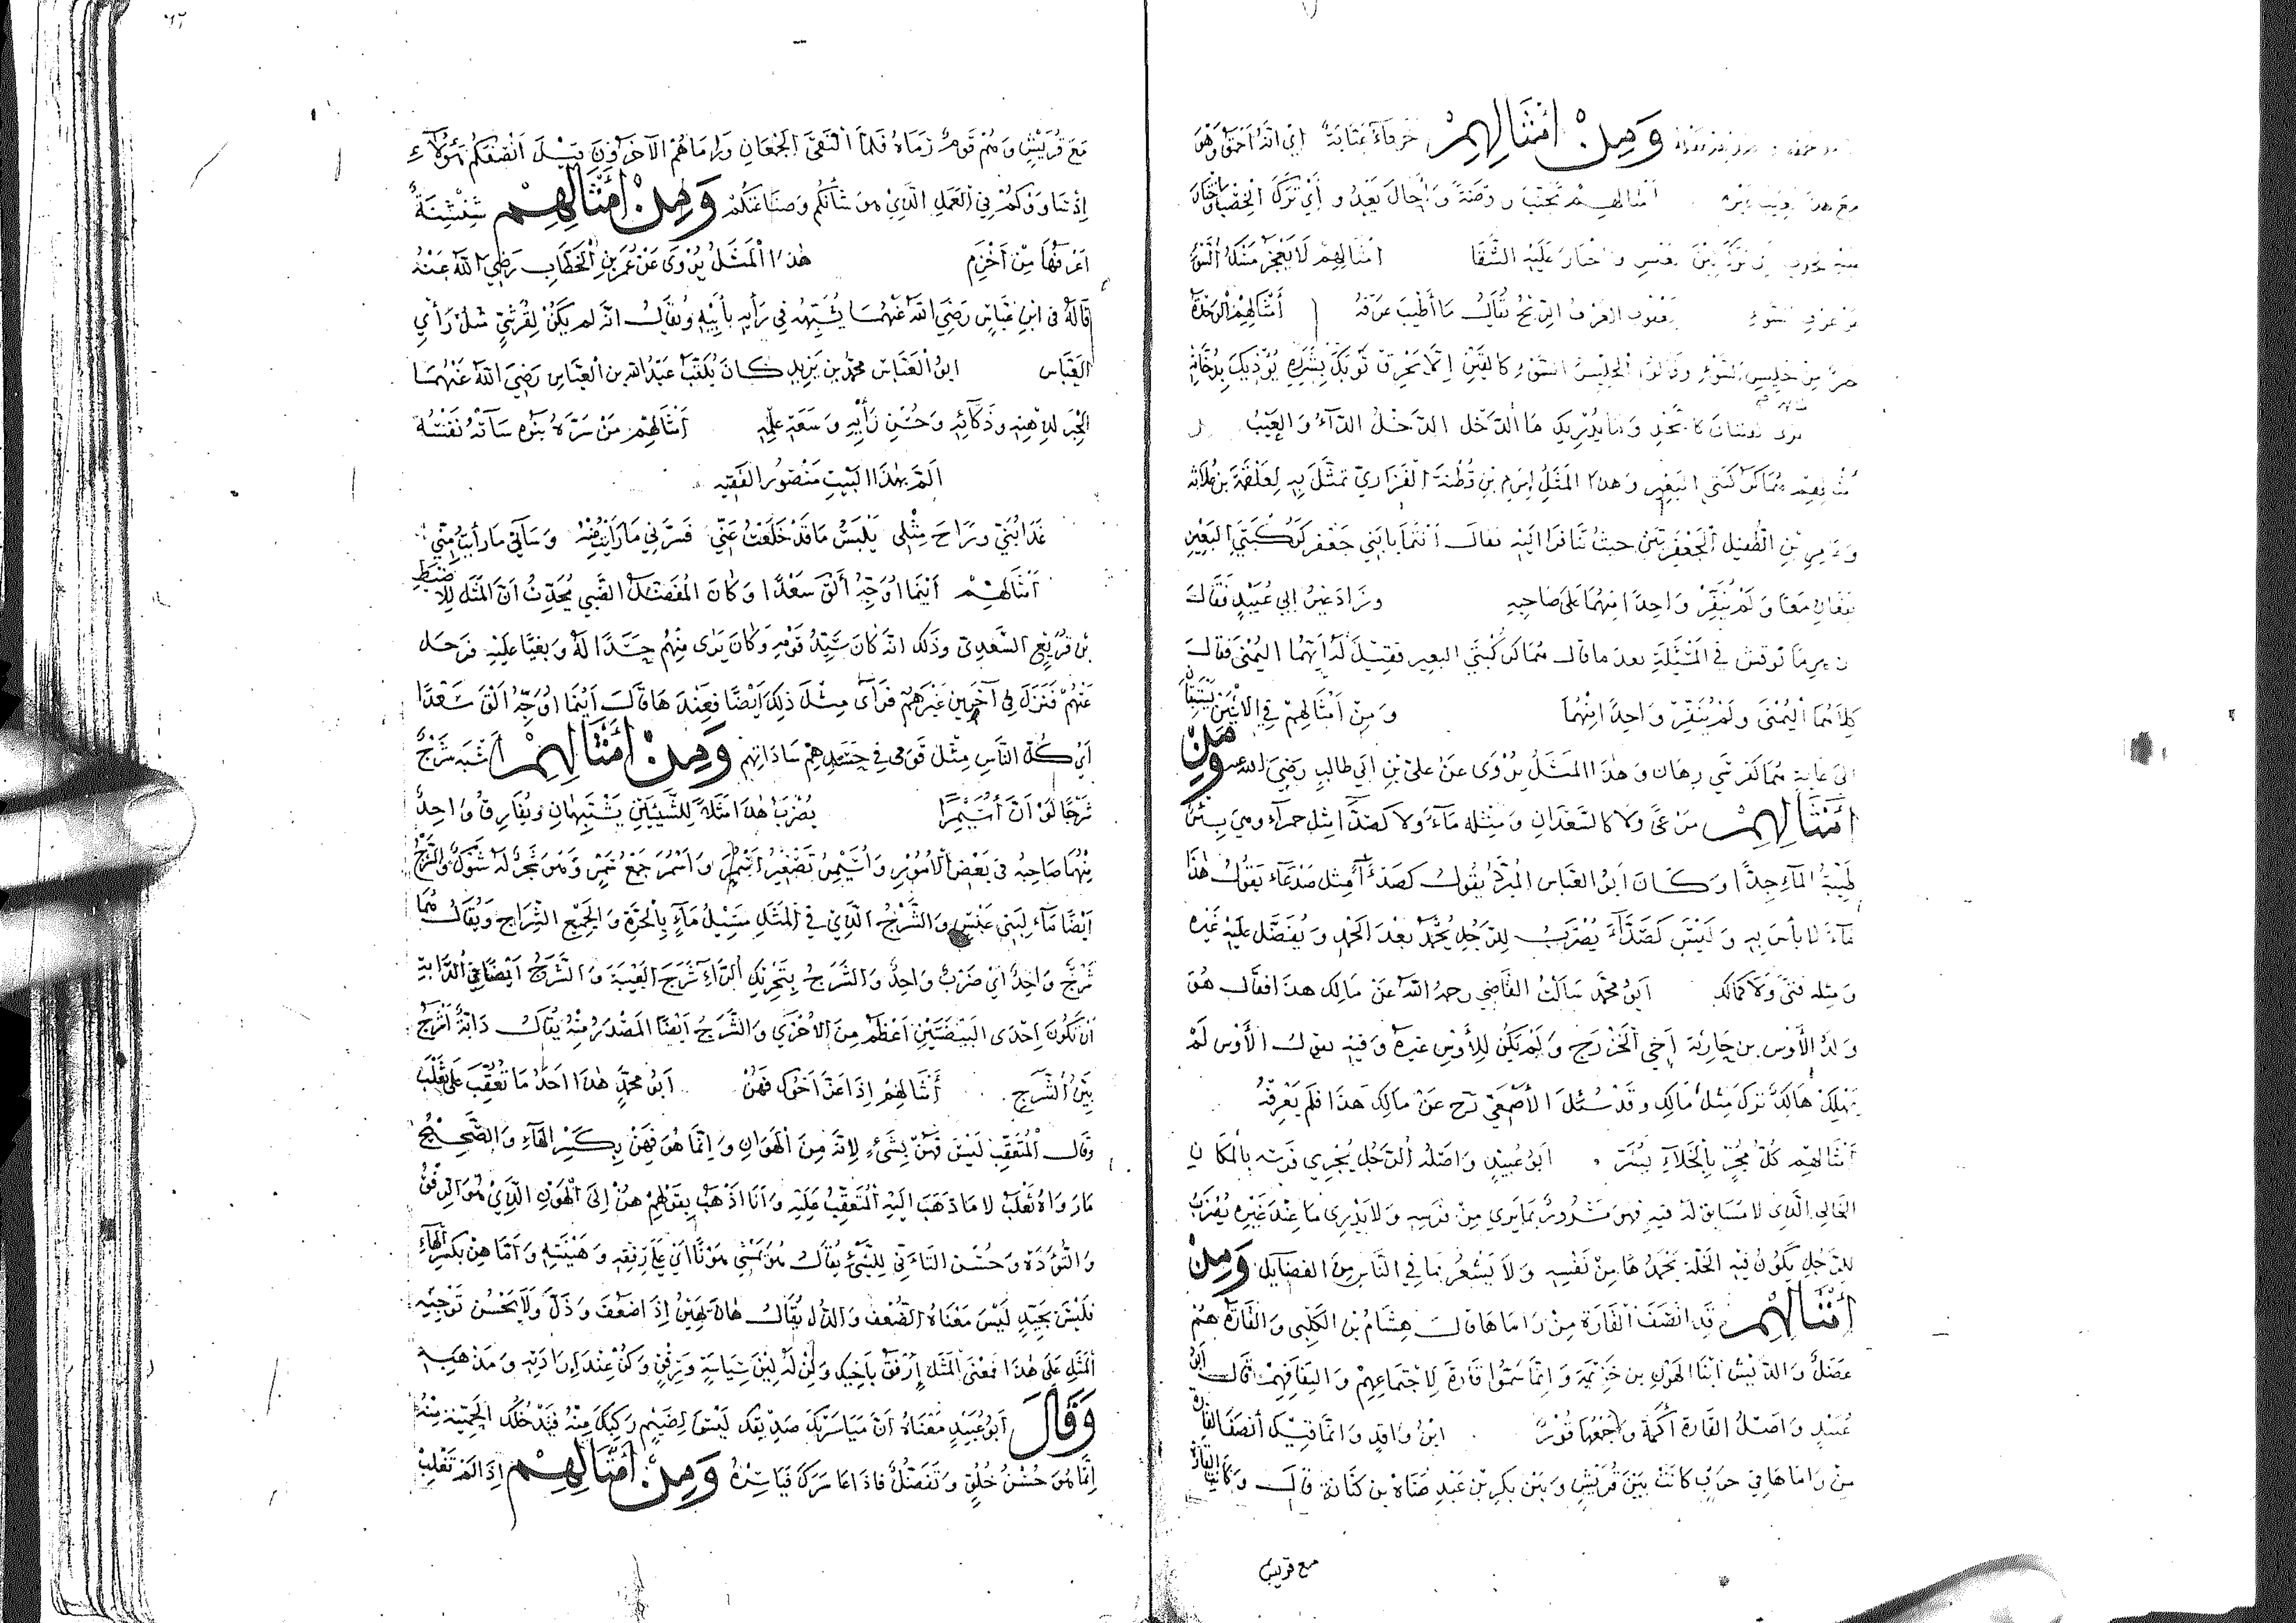 وَمِنْ أمْثَالِهِمْ خَرْقَاءُ عَيَّابَةٌ أي انّهُ أحمَقُ وَهُوَ
مع هذا يعيب غيره أمثالهم تجنّب روضة وأحال يعدو أي ترك الخصب واختار
عليه الشقا أمثالهم لا يعجز مسك السوء
عن عرف السوء يقول العرف الريح يقال ما أطيب عرفه أمثالهم الوحدة
خير من جليس السوء وقالوا الجليس السوء كالقين إلا يحرق ثوبك بشرره يؤذيك بدخانه
ترى الفتيان كالنخل وما يدريك ما الدخل الدخل الداء والعيب
أمثالهم هما كركبتي البعير وهذا المثل لهرم بن قطبة الفزاري تمثل به لعلقمة بن علاثة
وعامر بن الطفيل الجعفريين حيث تنافرا اليه فقال أنتما يا بني جعفر كركبتي البعير
تقعان معا ولم ينفر واحدا منهما على صاحبه وزاد غير ابي عبيد فقال
هرما نوقش في المسئلة بعد ما قال هما كركبتي البعير فقيل له أيهما اليمنى فقال
كلاهما اليمنى ولم ينفر واحدا منهما ومن أمثالهم في الاثنين يستبقا
الى غاية هما كفرسي رهان وهذا المثل يروى عن علي بن ابي طالب رضي الله عنه ومن
أمثالهم مرعى ولا كالسعدان ومثله ماء ولا كصدّا مثل حمراء وهي بئر
طيبة الماء جدا وكان ابو العباس المبرد يقول كصدءاء مثل صدعاء يقول هذا
ماء لا بأس به وليس كصداء يضرب للرجل يحمد بعد الحمد ويفضل عليه غيره
ومثله فتى ولا كمالك ابو محمد سالت القاضي رحمه الله عن مالك هذا فقال هو
ولد الأوس بن حارثة أخي الخزرج ولم يكن للأوس غيره وفيه يقول الأوس لم
يهلك هالك ترك مثل مالك وقد سئل الأصمعي عن مالك هذا فلم يعرفه
أمثالهم كل مجر بالخلاء يسر ابو عبيد واصله الرجل يجري فرسه بالمكان
الخالي الذي لا مسابق له فيه فهو مسرور بما يرى من فرسه ولا يدري ما عند غيره يضرب
للرجل يكون فيه الخلة يحمدها من نفسه ولا يشعر بما في الناس من الفضايل ومن
أمثالهم قد انصف القارة من راماها قال هشام بن الكلبي والقارة هم
عضل والديش ابنا الهون بن خزيمة وانما سموا قارة لاجتماعهم والتفافهم قال ابو
عبيد واصل القارة أكمة وجمعها قور ابن واقد وانما قيل أنصف القارة
من راماها في حرب كانت بين قريش وبين بكر بن عبد مناة بن كنانة قال وكانت القارة
مع قريش
مع قريش وهم قوم رماة فلما التقى الجمعان وراماهم الآخرون قيل أنصفكم هؤلاء
إذ ساووكم في العمل الذي من شأنكم وصناعتكم ومن أمثالهم شنشنة
اعرفها من أخزم هذا المثل يروى عن عمر بن الخطاب رضي الله عنه
قاله في ابن عباس رضي الله عنهما يشبهه في رأيه بأبيه ويقال انه لم يكن لقرشي مثل رأي
العباس ابو العباس محمد بن يزيد كان يلقب عبد الله بن العباس رضي الله عنهما
الحبر لذهنه وذكائه وحسن رأيه وسعة علمه أمثالهم من سره بنوه ساته نفسه
الم بهذا البيت منصور الفقيه
غدا بني وراح مثلي يلبس ما قد خلعت عني فسرني ما رأيت منه وساني ما رأيت مني
أمثالهم أينما أوجه ألق سعدا وكان المفضل الضبي يحدث ان المثل للأضبط
بن قريع السعدي وذلك انه كان سيد قومه وكان يرى منهم حسدا له وبغيا عليه فرحل
عنهم فنزل في آخرين غيرهم فرأى مثل ذلك أيضا فعندها قال أينما أوجه ألق سعدا
أي كل الناس مثل قومي في حسدهم ساداتهم ومن أمثالهم أشبه شرج
شرجا لو أن أسيمرا يضرب هذا مثلا للشيئين يشتبهان ويفارق واحد
منهما صاحبه في بعض الأمور وأسيمر تصغير أسمر وأسمر جمع سمر وهو شجر له شوك والشرج
ايضا ماء لبني عبس والشرج الذي في المثل مسيل ماء بالحرة والجميع الشراج ويقال هما
شرج واحد اي ضرب واحد والشرج بتحريك الراء شرج العيبة والشرج أيضا في الدابة
ان تكون احدى البيضتين اعظم من الأخرى والشرج ايضا المصدر منه يقال دابة أشرج
بين الشرج أمثالهم إذا عز أخوك فهن ابو محمد هذا احد ما تعقب على ثعلب
وقال المتعقب ليس فهن بشيء لانه من الهوان وانما هو فهن بكسر الهاء والصحيح
ما رواه ثعلب لا ما ذهب اليه المتعقب عليه وانا اذهب بقولهم هن إلى الهون الذي هو الرفق
والتؤدة وحسن التاءتي للشيء يقال هو يمشي هونا اي على رفقه وهينته وأما هن بكسر الهاء
فليس بجيد ليس معناه الضعف والذل يقال هان يهين إذا ضعف وذل ولا يحسن توجيه
المثل على هذا فمعنى المثل إرفق بأخيك ولن له لين سياسة ورفق وكن عند إرادته ومذهبه
وقال ابو عبيد معناه ان مياسرتك صديقك ليست لضيم ركبك منه فتدخلك الحمية منه
إنما هو حسن خلق وتفضل فاذا عاسرك فياسره ومن أمثالهم إذا لم تغلب